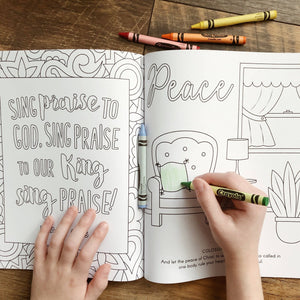 SING praise TO
GOD, SING PRAISE
TO OUR King
sing PRAISE!
Peace
COLOSS
And let the peace of Christ
called in
one body rule your
Crayola